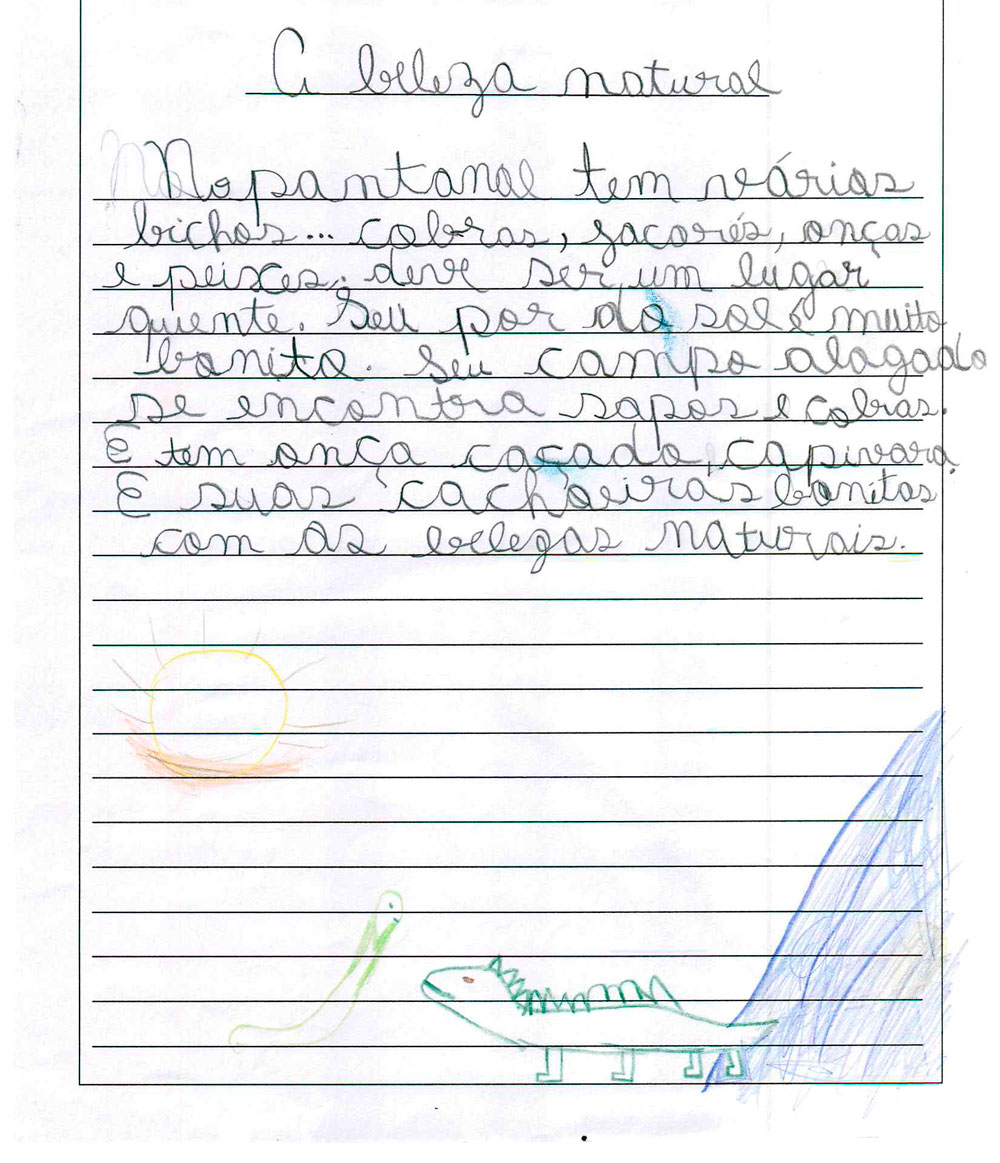 A beleza natural
No pantanal tem várias
bichos... cobras, jacarés, onças
e peixes, deve ser um lugar
quente. Seu por do sol é muito
bonito. Seu campo alagado
se encontra sapos e cobras.
E tem onça caçado, capivara.
E suas cachoeiras bonitas
com as belezas naturais.